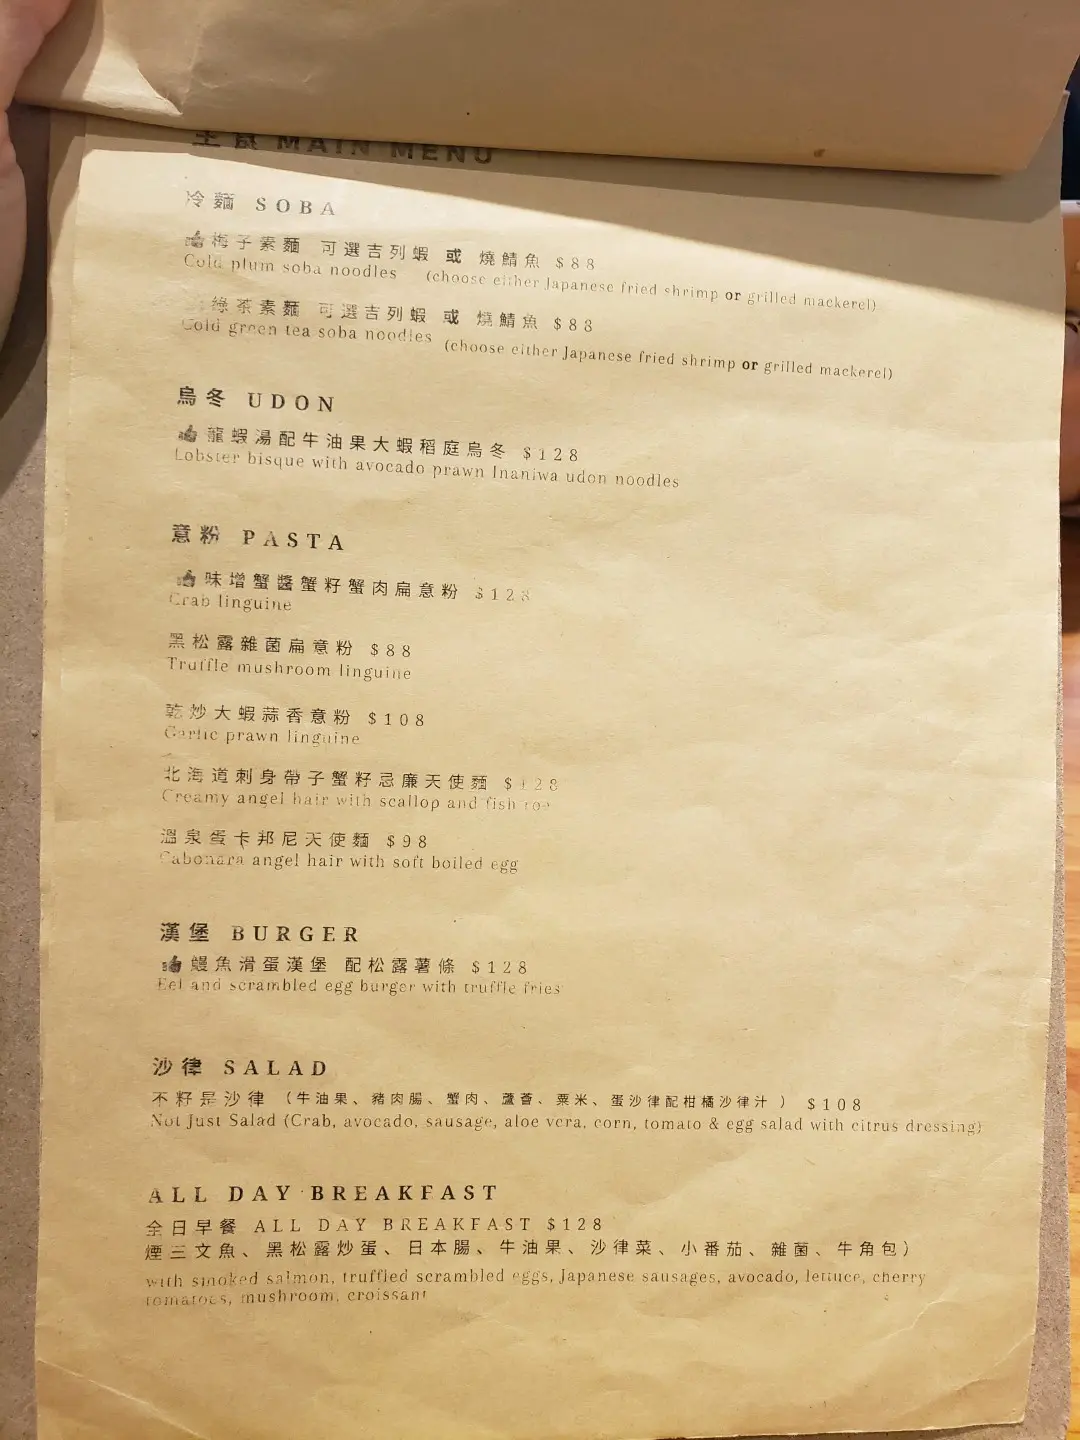 主食 MAIN MENU
冷麵 SOBA
梅子素麵 可選吉列蝦 或 燒鯖魚 $88
Cold plum soba noodles (choose either Japanese fried shrimp or grilled mackerel)
綠茶素麵 可選吉列蝦 或 燒鯖魚 $88
Cold green tea soba noodles (choose either Japanese fried shrimp or grilled mackerel)
烏冬 UDON
龍蝦湯配牛油果大蝦稻庭烏冬 $128
Lobster bisque with avocado prawn Inaniwa udon noodles
意粉 PASTA
味增蟹醬蟹籽蟹肉扁意粉 $128
Crab linguine
黑松露雜菌扁意粉 $88
Truffle mushroom linguine
乾炒大蝦蒜香意粉 $108
Garlic prawn linguine
北海道刺身帶子蟹籽忌廉天使麵 $128
Creamy angel hair with scallop and fish roe
溫泉蛋卡邦尼天使麵 $98
Cabonara angel hair with soft boiled egg
漢堡 BURGER
鰻魚滑蛋漢堡 配松露薯條 $128
Eel and scrambled egg burger with truffle fries
沙律 SALAD
不籽是沙律 （牛油果、豬肉腸、蟹肉、蘆薈、粟米、蛋沙律配柑橘沙律汁 ） $108
Not Just Salad (Crab, avocado, sausage, aloe vera, corn, tomato & egg salad with citrus dressing)
ALL DAY BREAKFAST
全日早餐 ALL DAY BREAKFAST $128
煙三文魚、黑松露炒蛋、日本腸、牛油果、沙律菜、小番茄、雜菌、牛角包）
with smoked salmon, truffled scrambled eggs, Japanese sausages, avocado, lettuce, cherry
tomatoes, mushroom, croissant